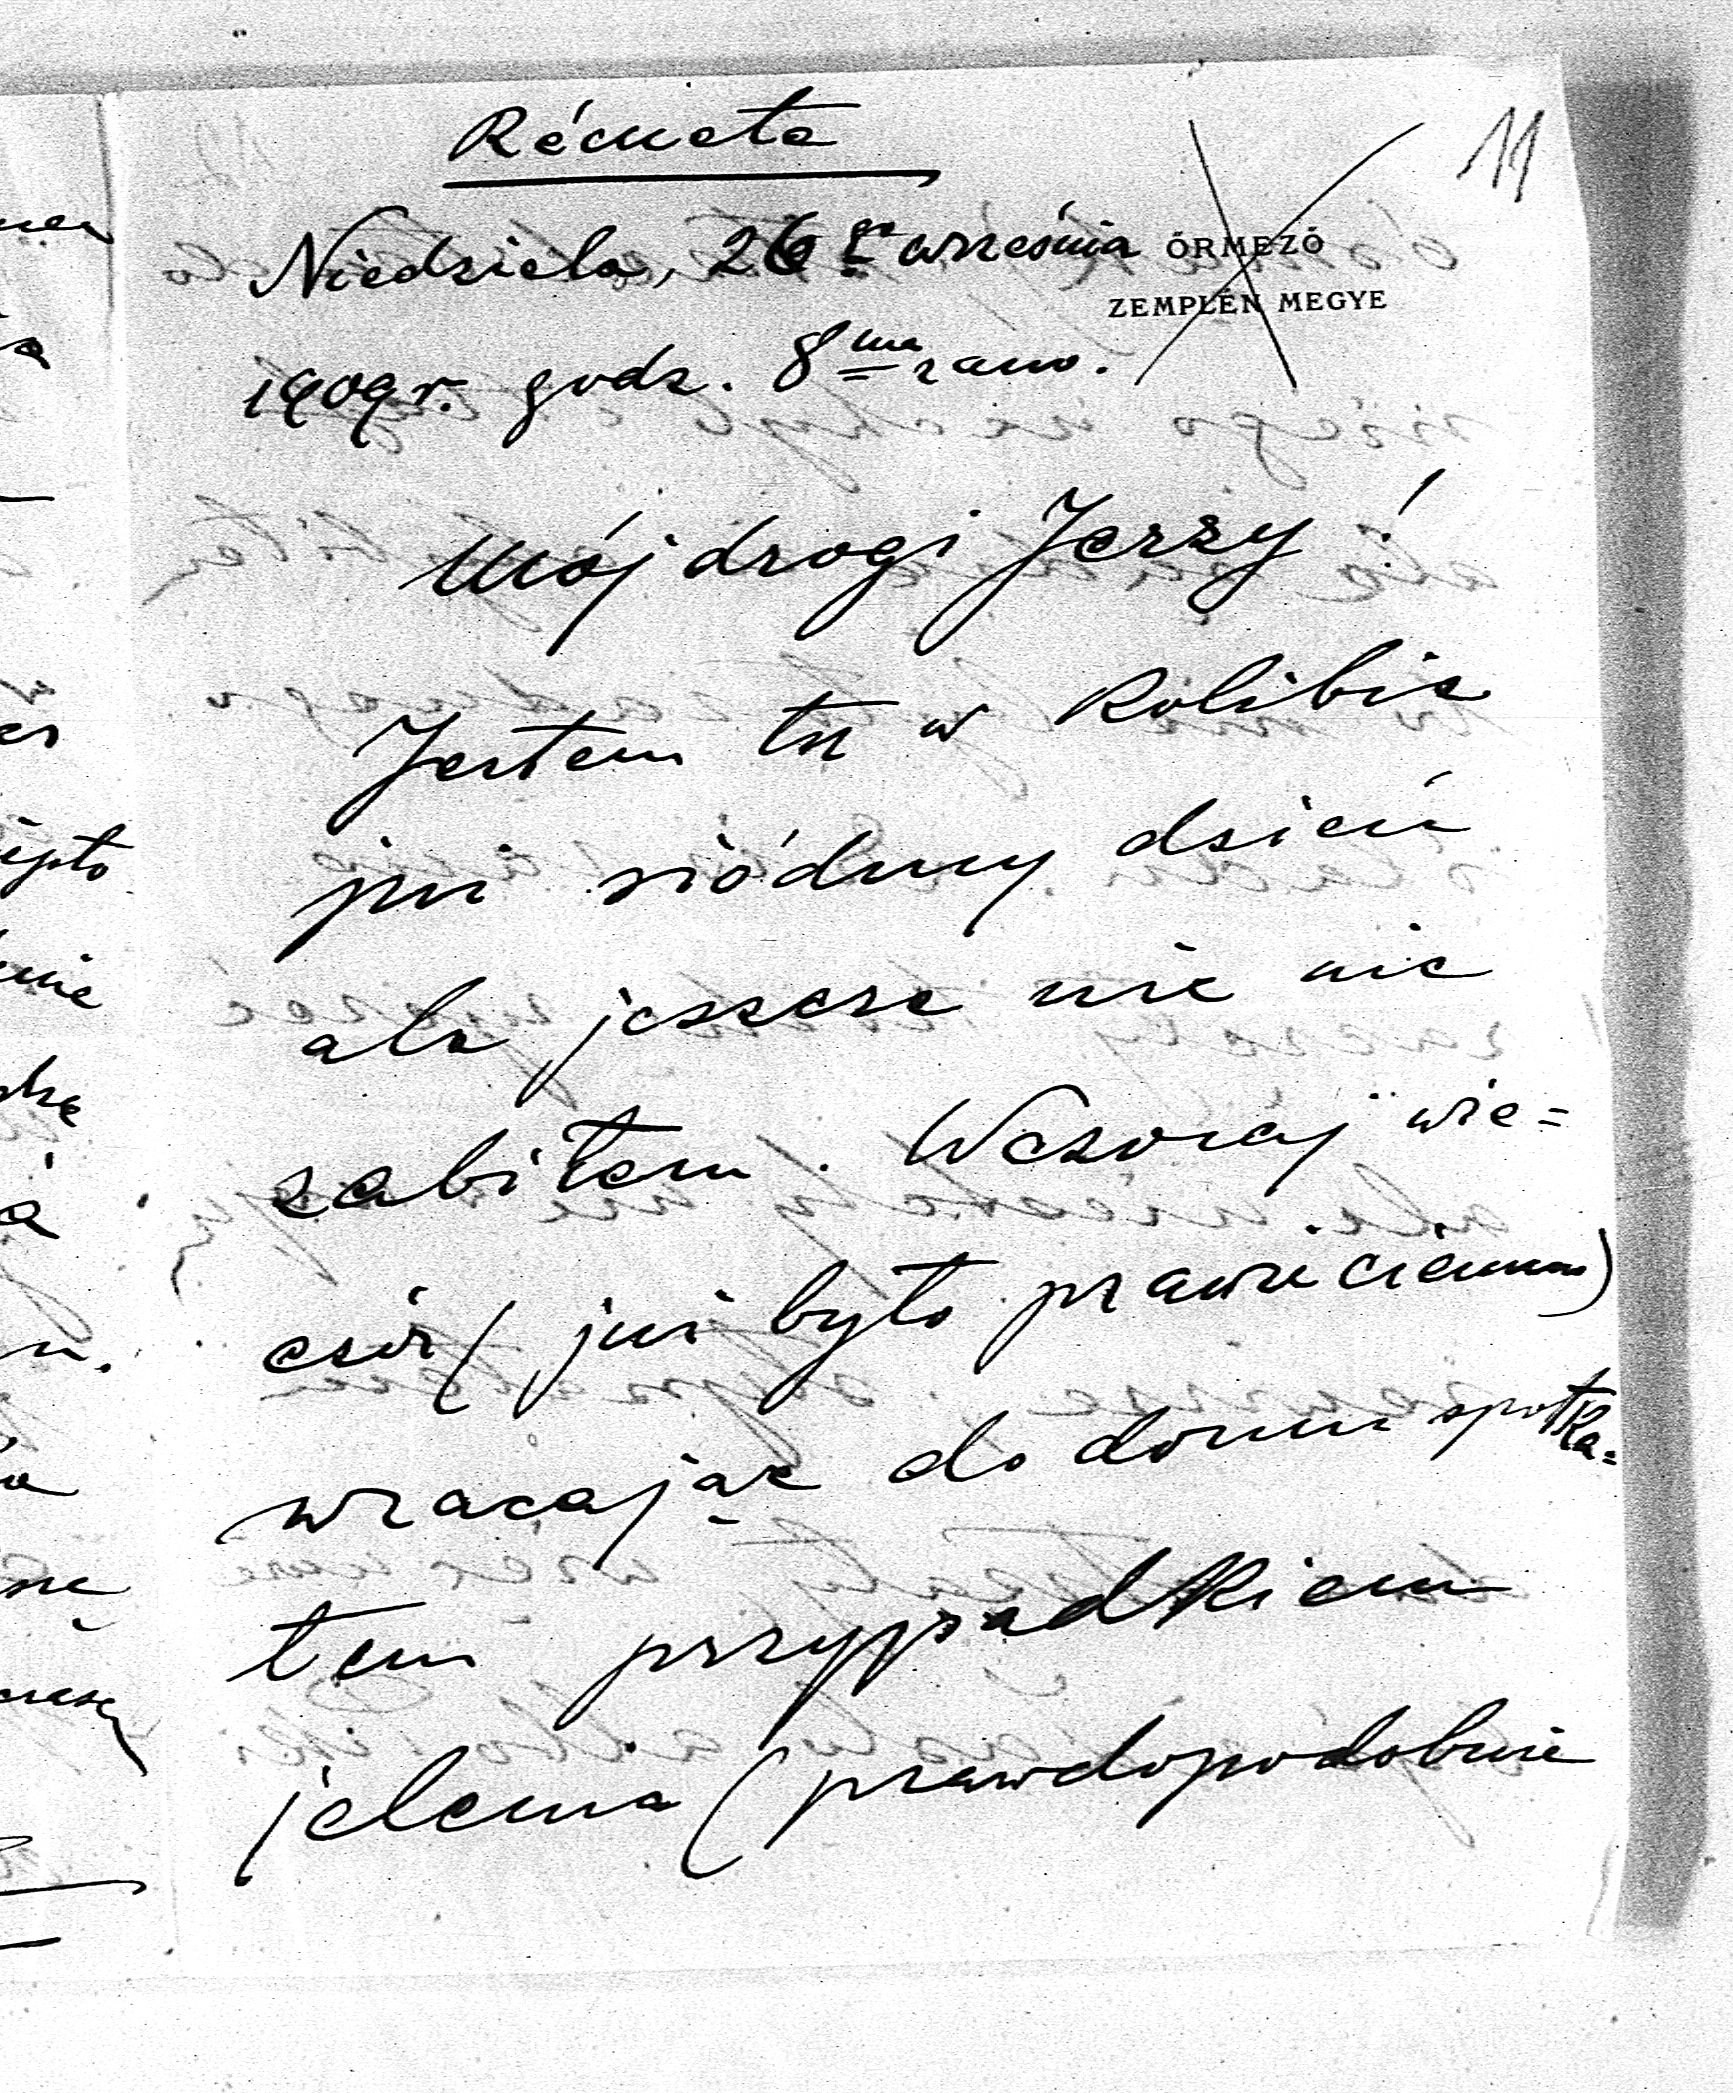 Récseta
11
Niedziela, 26go września
ŐRMEZŐ
ZEMPLÉN MEGYE
1909 r. godz. 8ma rano.
Mój drogi Jerzy!
Jestem tu w Kolibie
już siódmy dzień
ale jeszcze nie nic
zabiłem. Wczoraj wie=
czór (już było prawie ciemno)
wracając do domu spotka=
łem przypadkiem
jelenia (prawdopodobnie